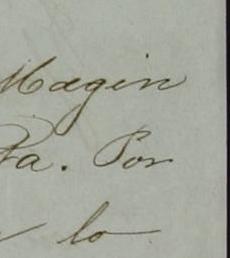 Magin
Pa. Por
lo